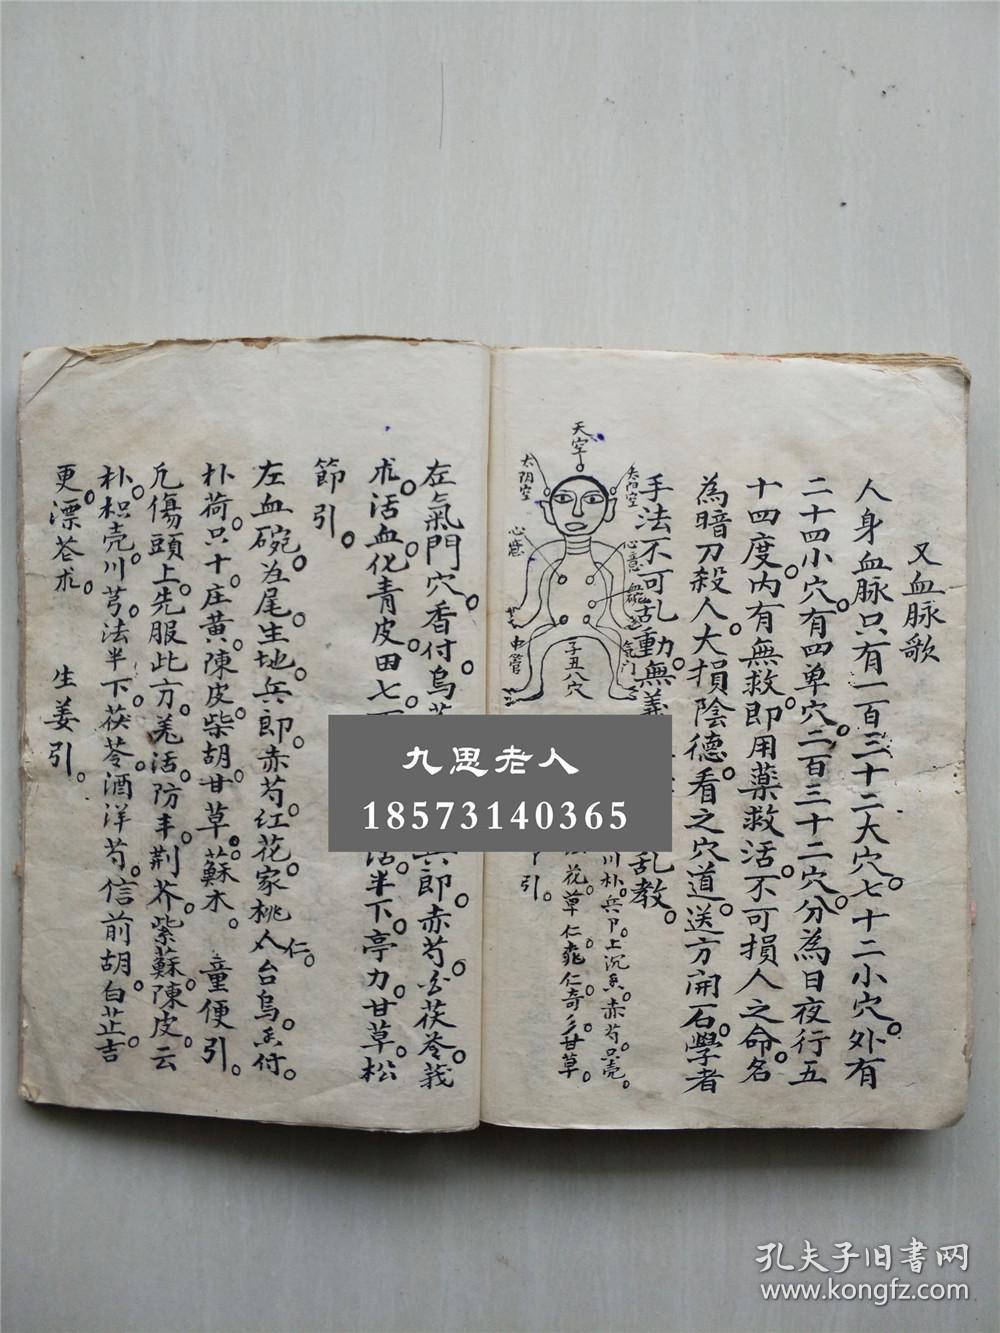 又血脉歌
人身血脉只有一百三十二大穴。七十二小穴。外有
二十四小穴。有四单穴。二百三十二穴。分為日夜行五
十四度。内有無救。即用藥救活。不可損人之命。名
為暗刀殺人。大損陰德。看之穴道。送方開石。學者
手法不可乱動。無義
乱教。
天空
太阴空
太阳空
心意
血碗
气门
子丑八穴
川朴。兵卩。上沉香。赤芍。只壳。
花草仁。桃仁。奇。甘草。
引。
左氣門穴。香付。烏
兵郎。赤芍。茯苓。莪
朮。活血。化青皮。田七。
活。半下。亭力。甘草。松
節引。
左血碗。為尾。生地。兵郎。赤芍。红花。家桃仁。台烏。香付。
朴荷。只十。庄黄。陳皮。柴胡。甘草。蘇木。 童便引。
凡傷頭上。先服此方。羌活。防丰。荆芥。紫蘇。陳皮。云
朴。枳壳。川芎。法半下。茯苓。酒洋芍。信前胡。白芷。吉
更。漂苍朮。 生姜引。
九思老人
18573140365
孔夫子旧書网
www.kongfz.com